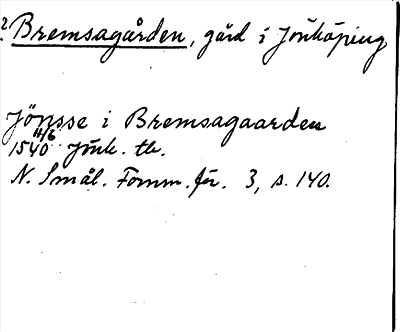 ? Bremsagården, gård i Jönköping
Jönsse i Bremsagaarden
1540 11/6 Jönk. tb.
N. Smål. Fornm.för. 3, s. 140.